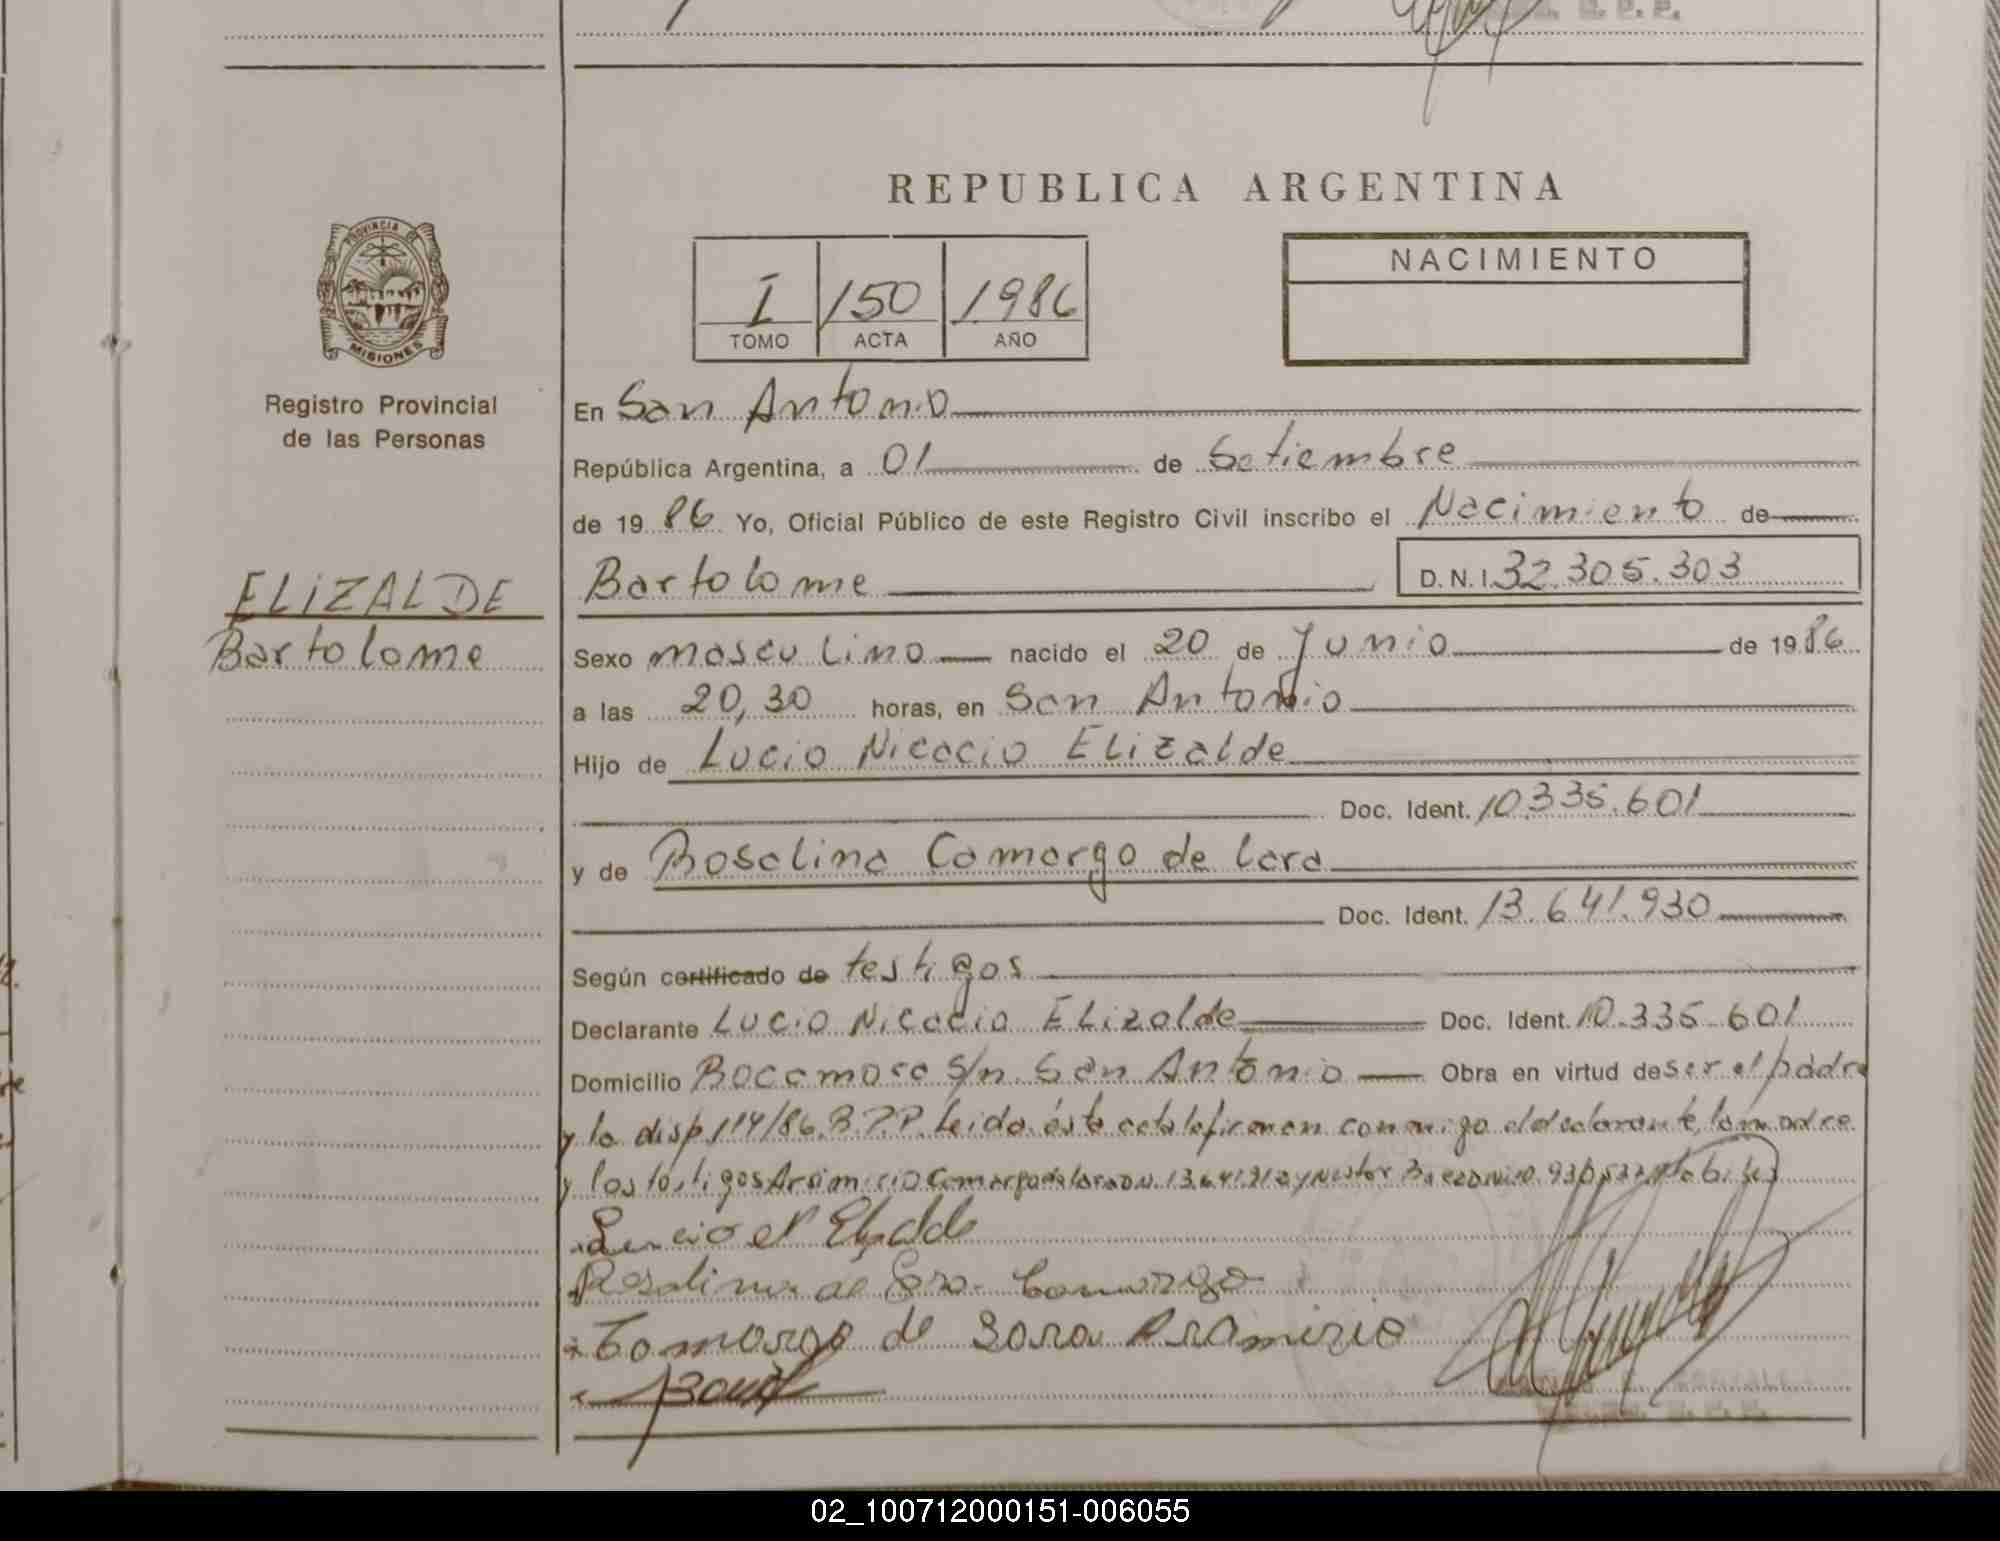 REPUBLICA ARGENTINA
PROVINCIA DE
MISIONES
Registro Provincial
de las Personas
I 150 1986
TOMO ACTA AÑO
NACIMIENTO
En San Antonio
República Argentina, a 01 de Setiembre
de 1986 Yo, Oficial Público de este Registro Civil inscribo el Nacimiento de
ELIZALDE
Bartolome
Bartolome D.N.I. 32.305.303
Sexo masculino nacido el 20 de Junio de 1986
a las 20,30 horas, en San Antonio
Hijo de Lucio Nicacio Elizalde
Doc. Ident. 10.335.601
y de Rosalina Camargo de Lara
Doc. Ident. 13.641.930
Según certificado de testigos
Declarante Lucio Nicacio Elizalde Doc. Ident. 10.335.601
Domicilio Bocamora S/n. San Antonio Obra en virtud de ser el padre
y la disp. 114/86. R.P.P. Leida ésta acta la firman conmigo el declarante, la madre
y los testigos Arsimicio Camargo de Lara y Nestor
Lucio N Elizalde
Rosalina de Lara Camargo
Camargo de Lara
02_100712000151-006055